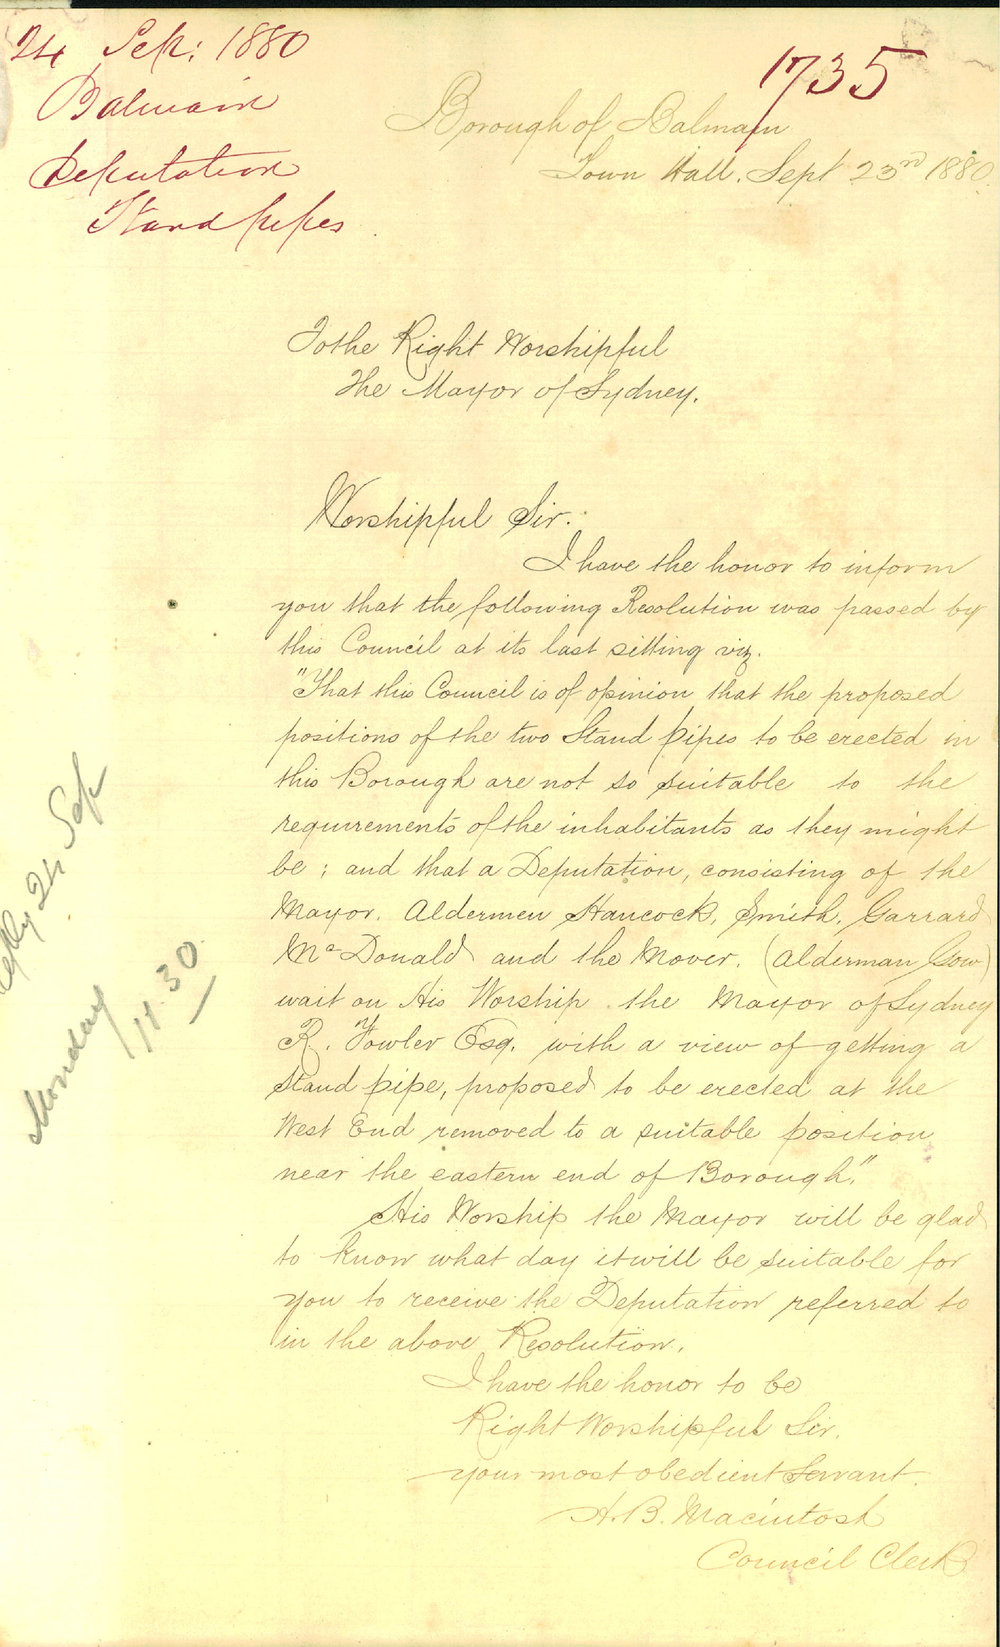 24 Sep: 1880
Balmain
Deputation
Stand pipes
1735
Borough of Balmain
Town Hall. Sept 23rd 1880.
To the Right Worshipful
The Mayor of Sydney.
Worshipful Sir.
I have the honor to inform
you that the following Resolution was passed by
this Council at its last sitting viz.
"That this Council is of opinion that the proposed
positions of the two Stand pipes to be erected in
this Borough are not so suitable to the
requirements of the inhabitants as they might
be; and that a Deputation, consisting of the
Mayor. Aldermen Hancock, Smith, Garrard
McDonald and the Mover. (Alderman Gow)
wait on His Worship the Mayor of Sydney
R. Fowler Esq. with a view of getting a
Stand pipe, proposed to be erected at the
West End removed to a suitable position
near the eastern end of Borough."
His Worship the Mayor will be glad
to know what day it will be suitable for
you to receive the Deputation referred to
in the above Resolution.
I have the honor to be
Right Worshipful Sir.
your most obedient Servant.
A. B. Macintosh
Council Clerk
24 Sep
Monday
11.30